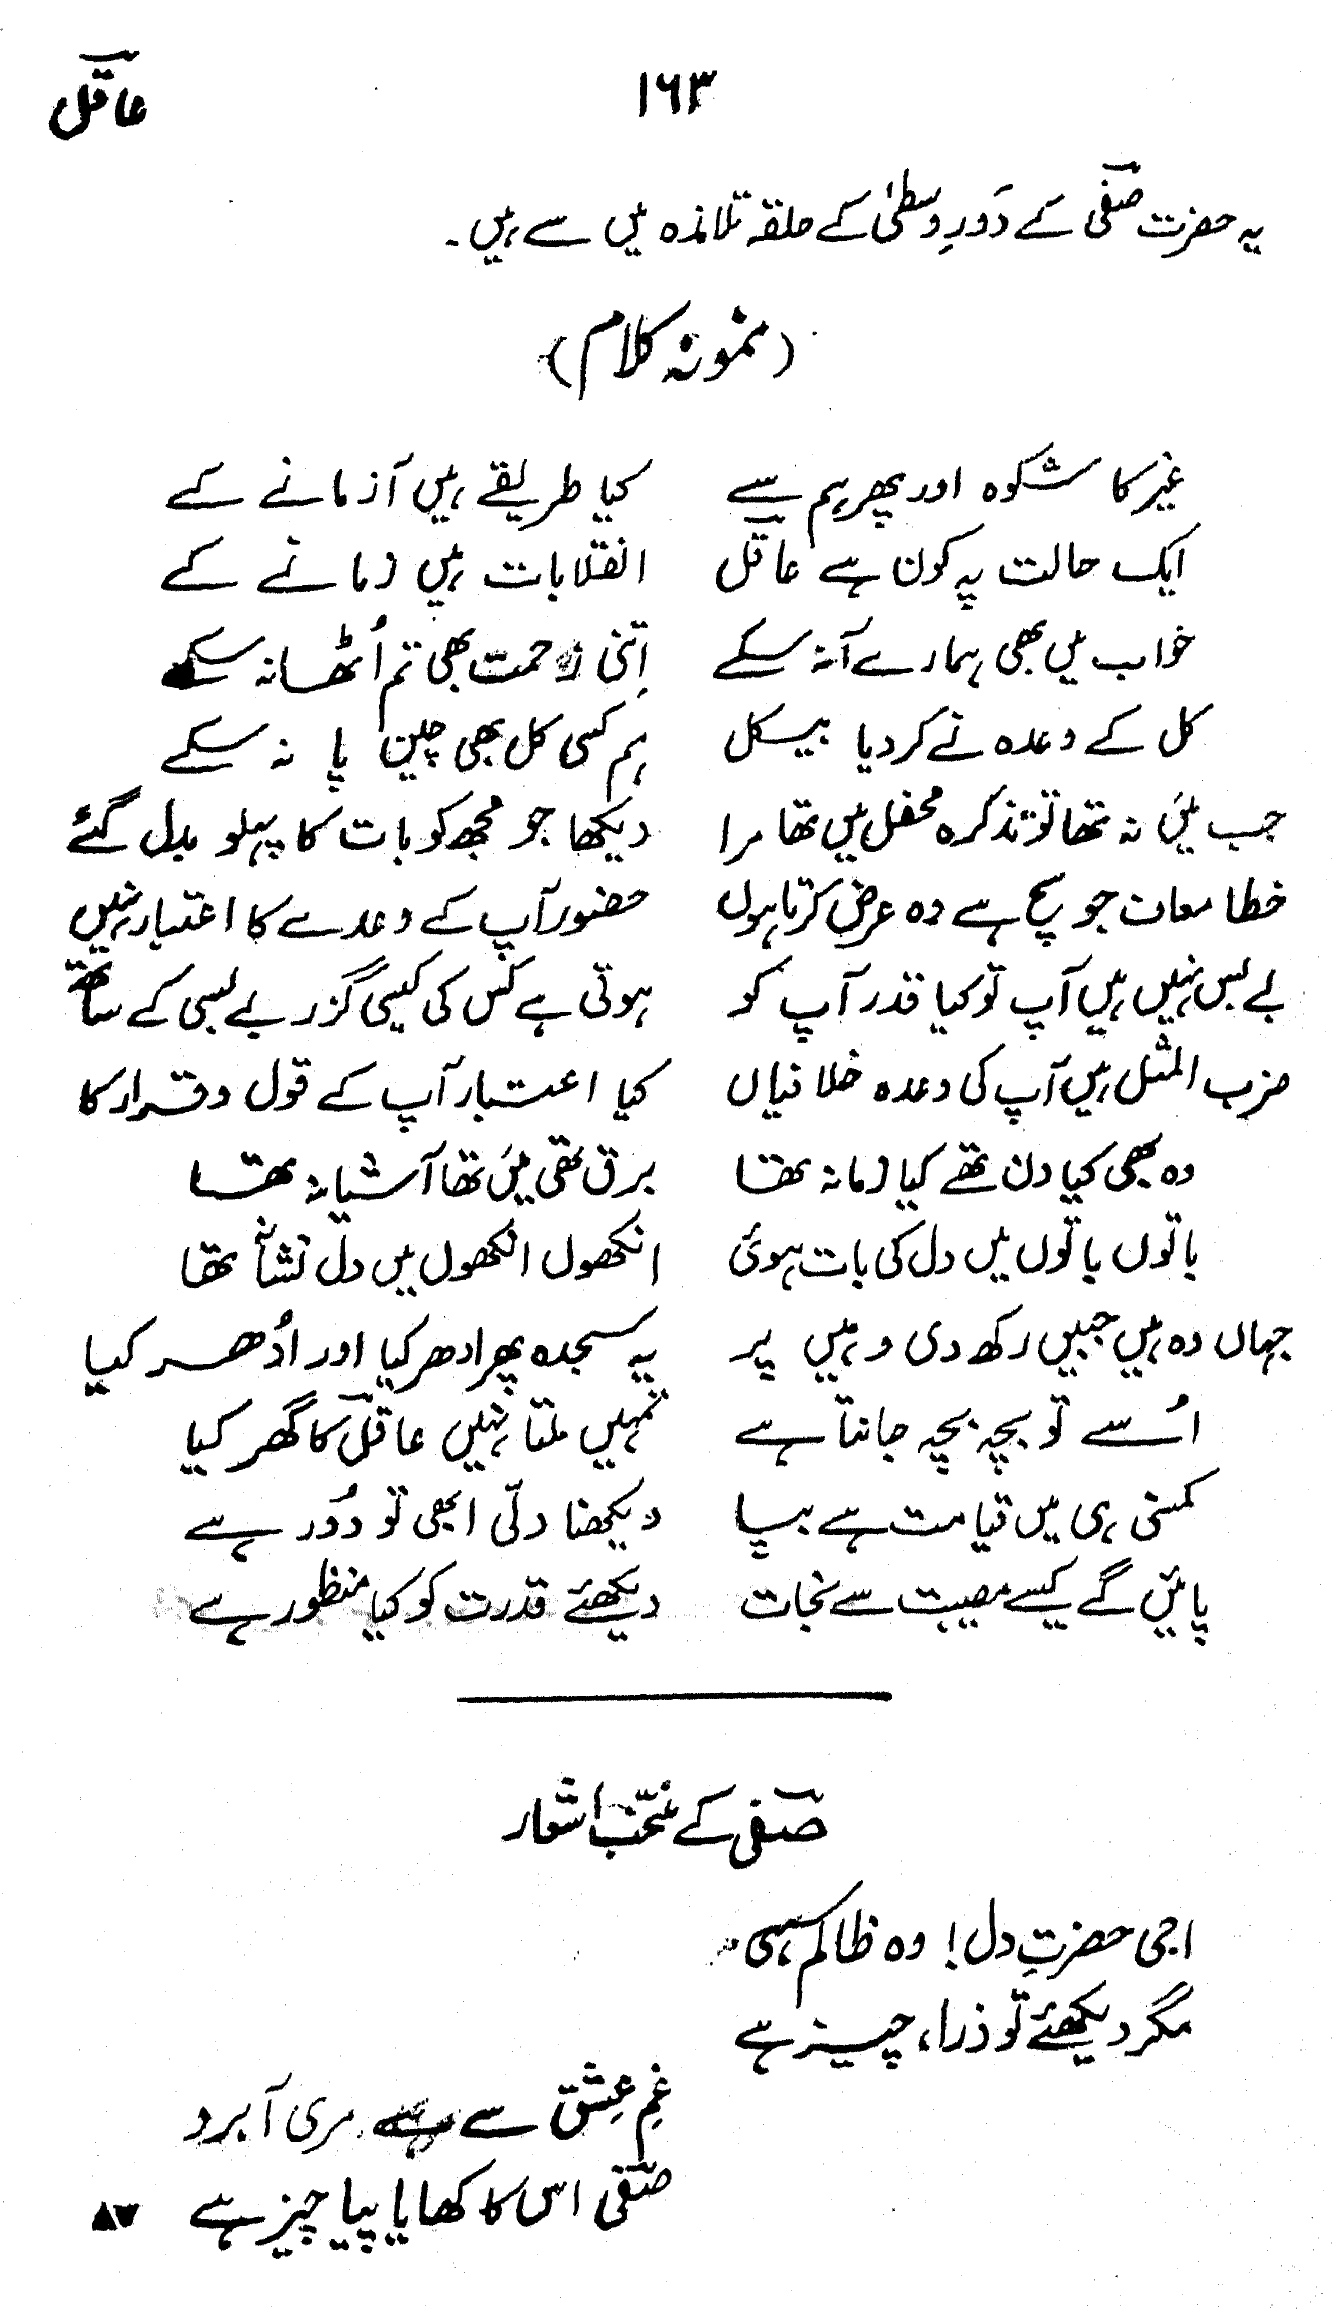 عاقل
۱۶۳
یہ حضرت صفی کے دَورِ وسطیٰ کے حلقہ تلامذہ میں سے ہیں۔
(نمونہ کلام)
غیر کا شکوہ اور پھر ہم سے کیا طریقے ہیں آزمانے کے
ایک حالت پہ کون ہے عاقل انقلابات ہیں زمانے کے
خواب میں بھی ہمارے آ نہ سکے اِتنی زحمت بھی تم اُٹھا نہ سکے
کل کے وعدہ نے کردیا بیکل ہم کسی کل بھی چین پا نہ سکے
جب میں نہ تھا تو تذکرہ محفل میں تھا مرا دیکھا جو مجھ کو بات کا پہلو بدل گئے
خطا معاف جو سچ ہے وہ عرض کرتا ہوں حضور آپ کے وعدے کا اعتبار نہیں
بے بس نہیں ہیں آپ تو کیا قدر آپ کو ہوتی ہے کس کی کیسی گزر بے بسی کے ساتھ
ضرب المثل ہیں آپ کی وعدہ خلافیاں کیا اعتبار آپ کے قول و قرار کا
وہ بھی کیا دن تھے کیا زمانہ تھا برق تھی میں تھا آشیانہ تھا
باتوں باتوں میں دل کی بات ہوئی انکھوں انکھوں میں دل نشانہ تھا
جہاں وہ ہیں جبیں رکھ دی وہیں پر یہ سجدہ پھر ادھر کیا اور اُدھر کیا
اُسے تو بچہ بچہ جانتا ہے تمہیں ملتا نہیں عاقل کا گھر کیا
کمسنی ہی میں قیامت ہے بپا دیکھنا دلّی ابھی تو دُور ہے
پائیں گے کیسے مصیبت سے نجات دیکھئے قدرت کو کیا منظور ہے
صفی کے منتخب اشعار
اجی حضرتِ دل! وہ ظالم سہی
مگر دیکھئے تو ذرا، چیز ہے
غمِ عِشق سے ہے مری آبرو
صفی اس کا کھایا پیا چیز ہے ۸۷